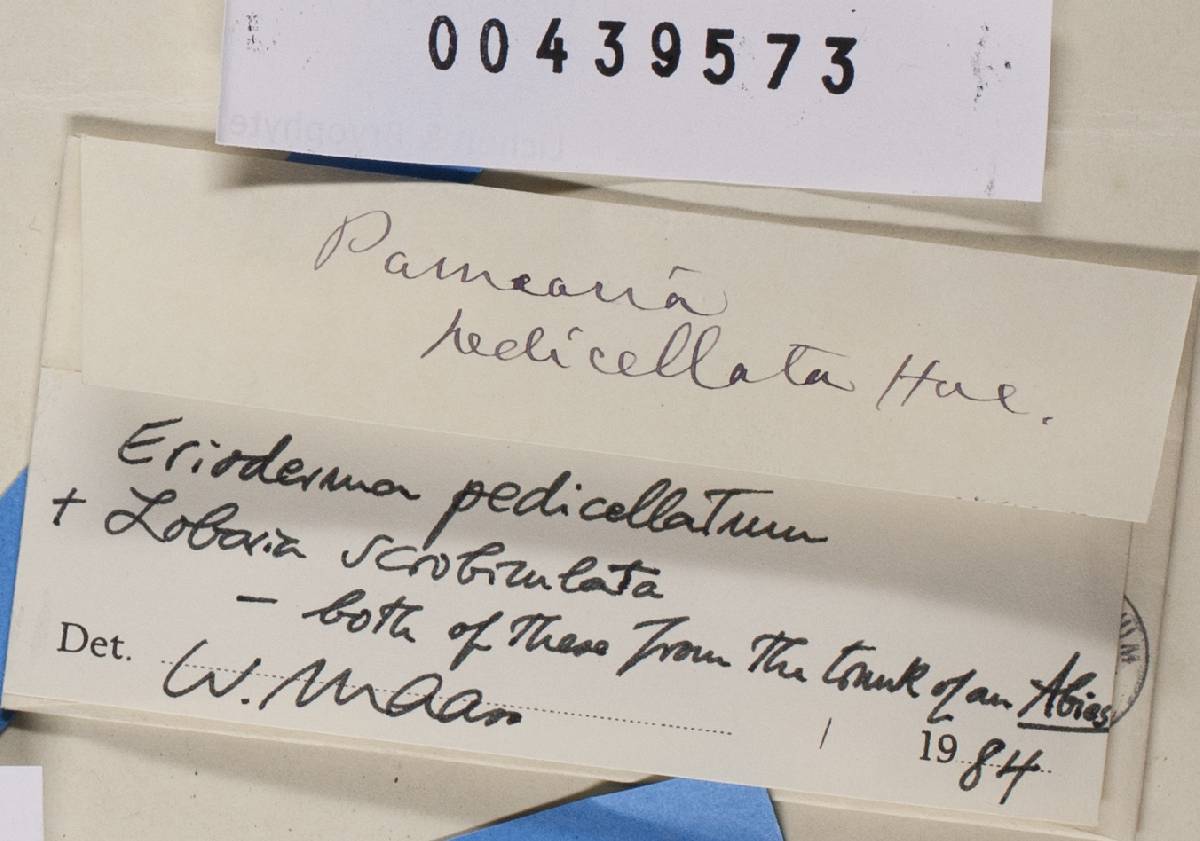 00439573
Pannaria
pedicellata Hue.
Erioderma pedicellatum
+ Lobaria scrobiculata
- both of these from the trunk of an Abies
Det. W. Maass
1984